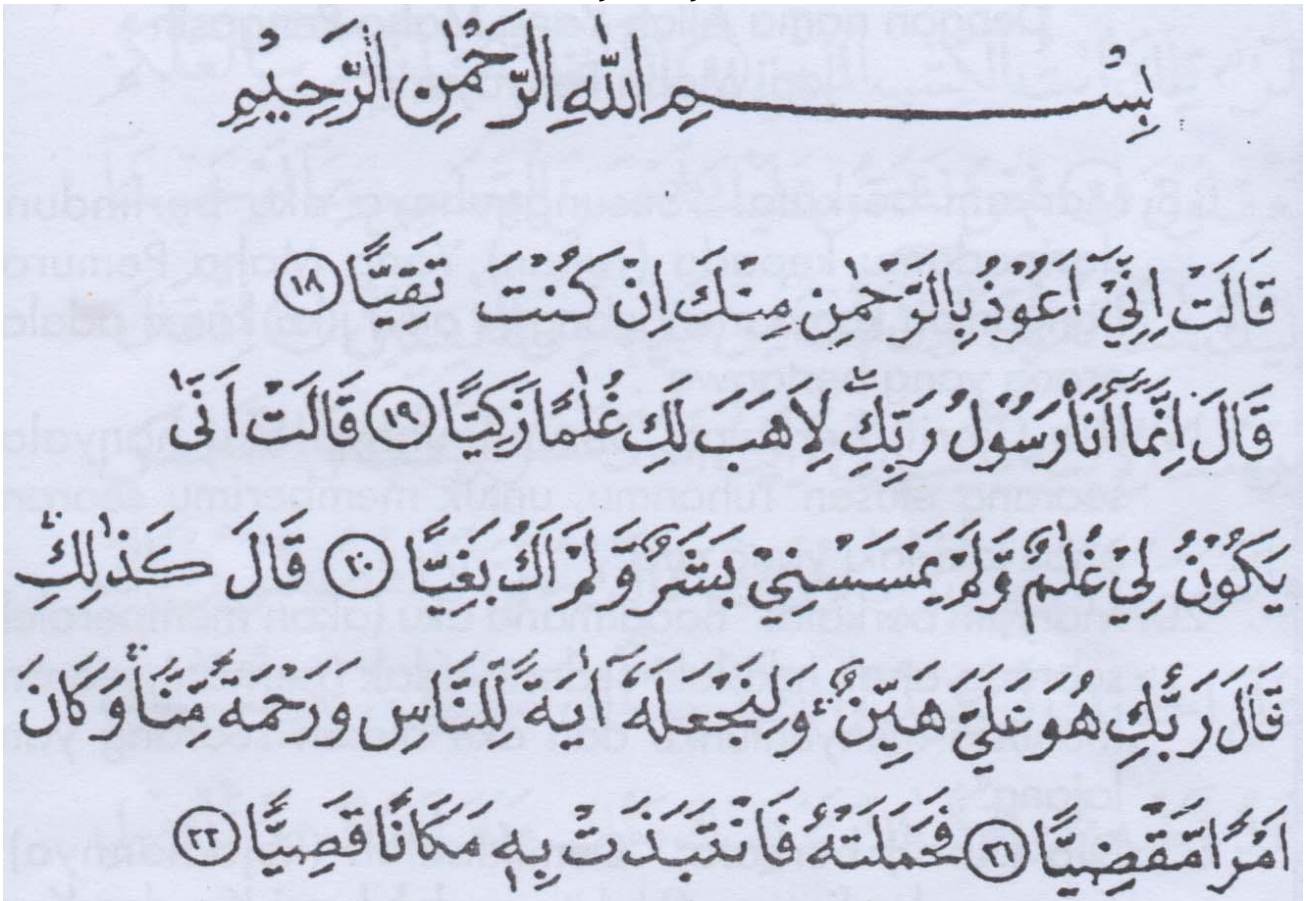 بِسْــــــمِ اللّٰهِ الرَّحْمٰنِ الرَّحِيْمِ
قَالَتْ اِنِّيْٓ اَعُوْذُ بِالرَّحْمٰنِ مِنْكَ اِنْ كُنْتَ تَقِيًّا ١٨
قَالَ اِنَّمَآ اَنَا۠ رَسُوْلُ رَبِّكِۖ لِاَهَبَ لَكِ غُلٰمًا زَكِيًّا ١٩ قَالَتْ اَنّٰى
يَكُوْنُ لِيْ غُلٰمٌ وَّلَمْ يَمْسَسْنِيْ بَشَرٌ وَّلَمْ اَكُ بَغِيًّا ٢٠ قَالَ كَذٰلِكِۚ
قَالَ رَبُّكِ هُوَ عَلَيَّ هَيِّنٌۚ وَلِنَجْعَلَهٗٓ اٰيَةً لِّلنَّاسِ وَرَحْمَةً مِّنَّاۚ وَكَانَ
اَمْرًا مَّقْضِيًّا ٢١ فَحَمَلَتْهُ فَانْتَبَذَتْ بِهٖ مَكَانًا قَصِيًّا ٢٢